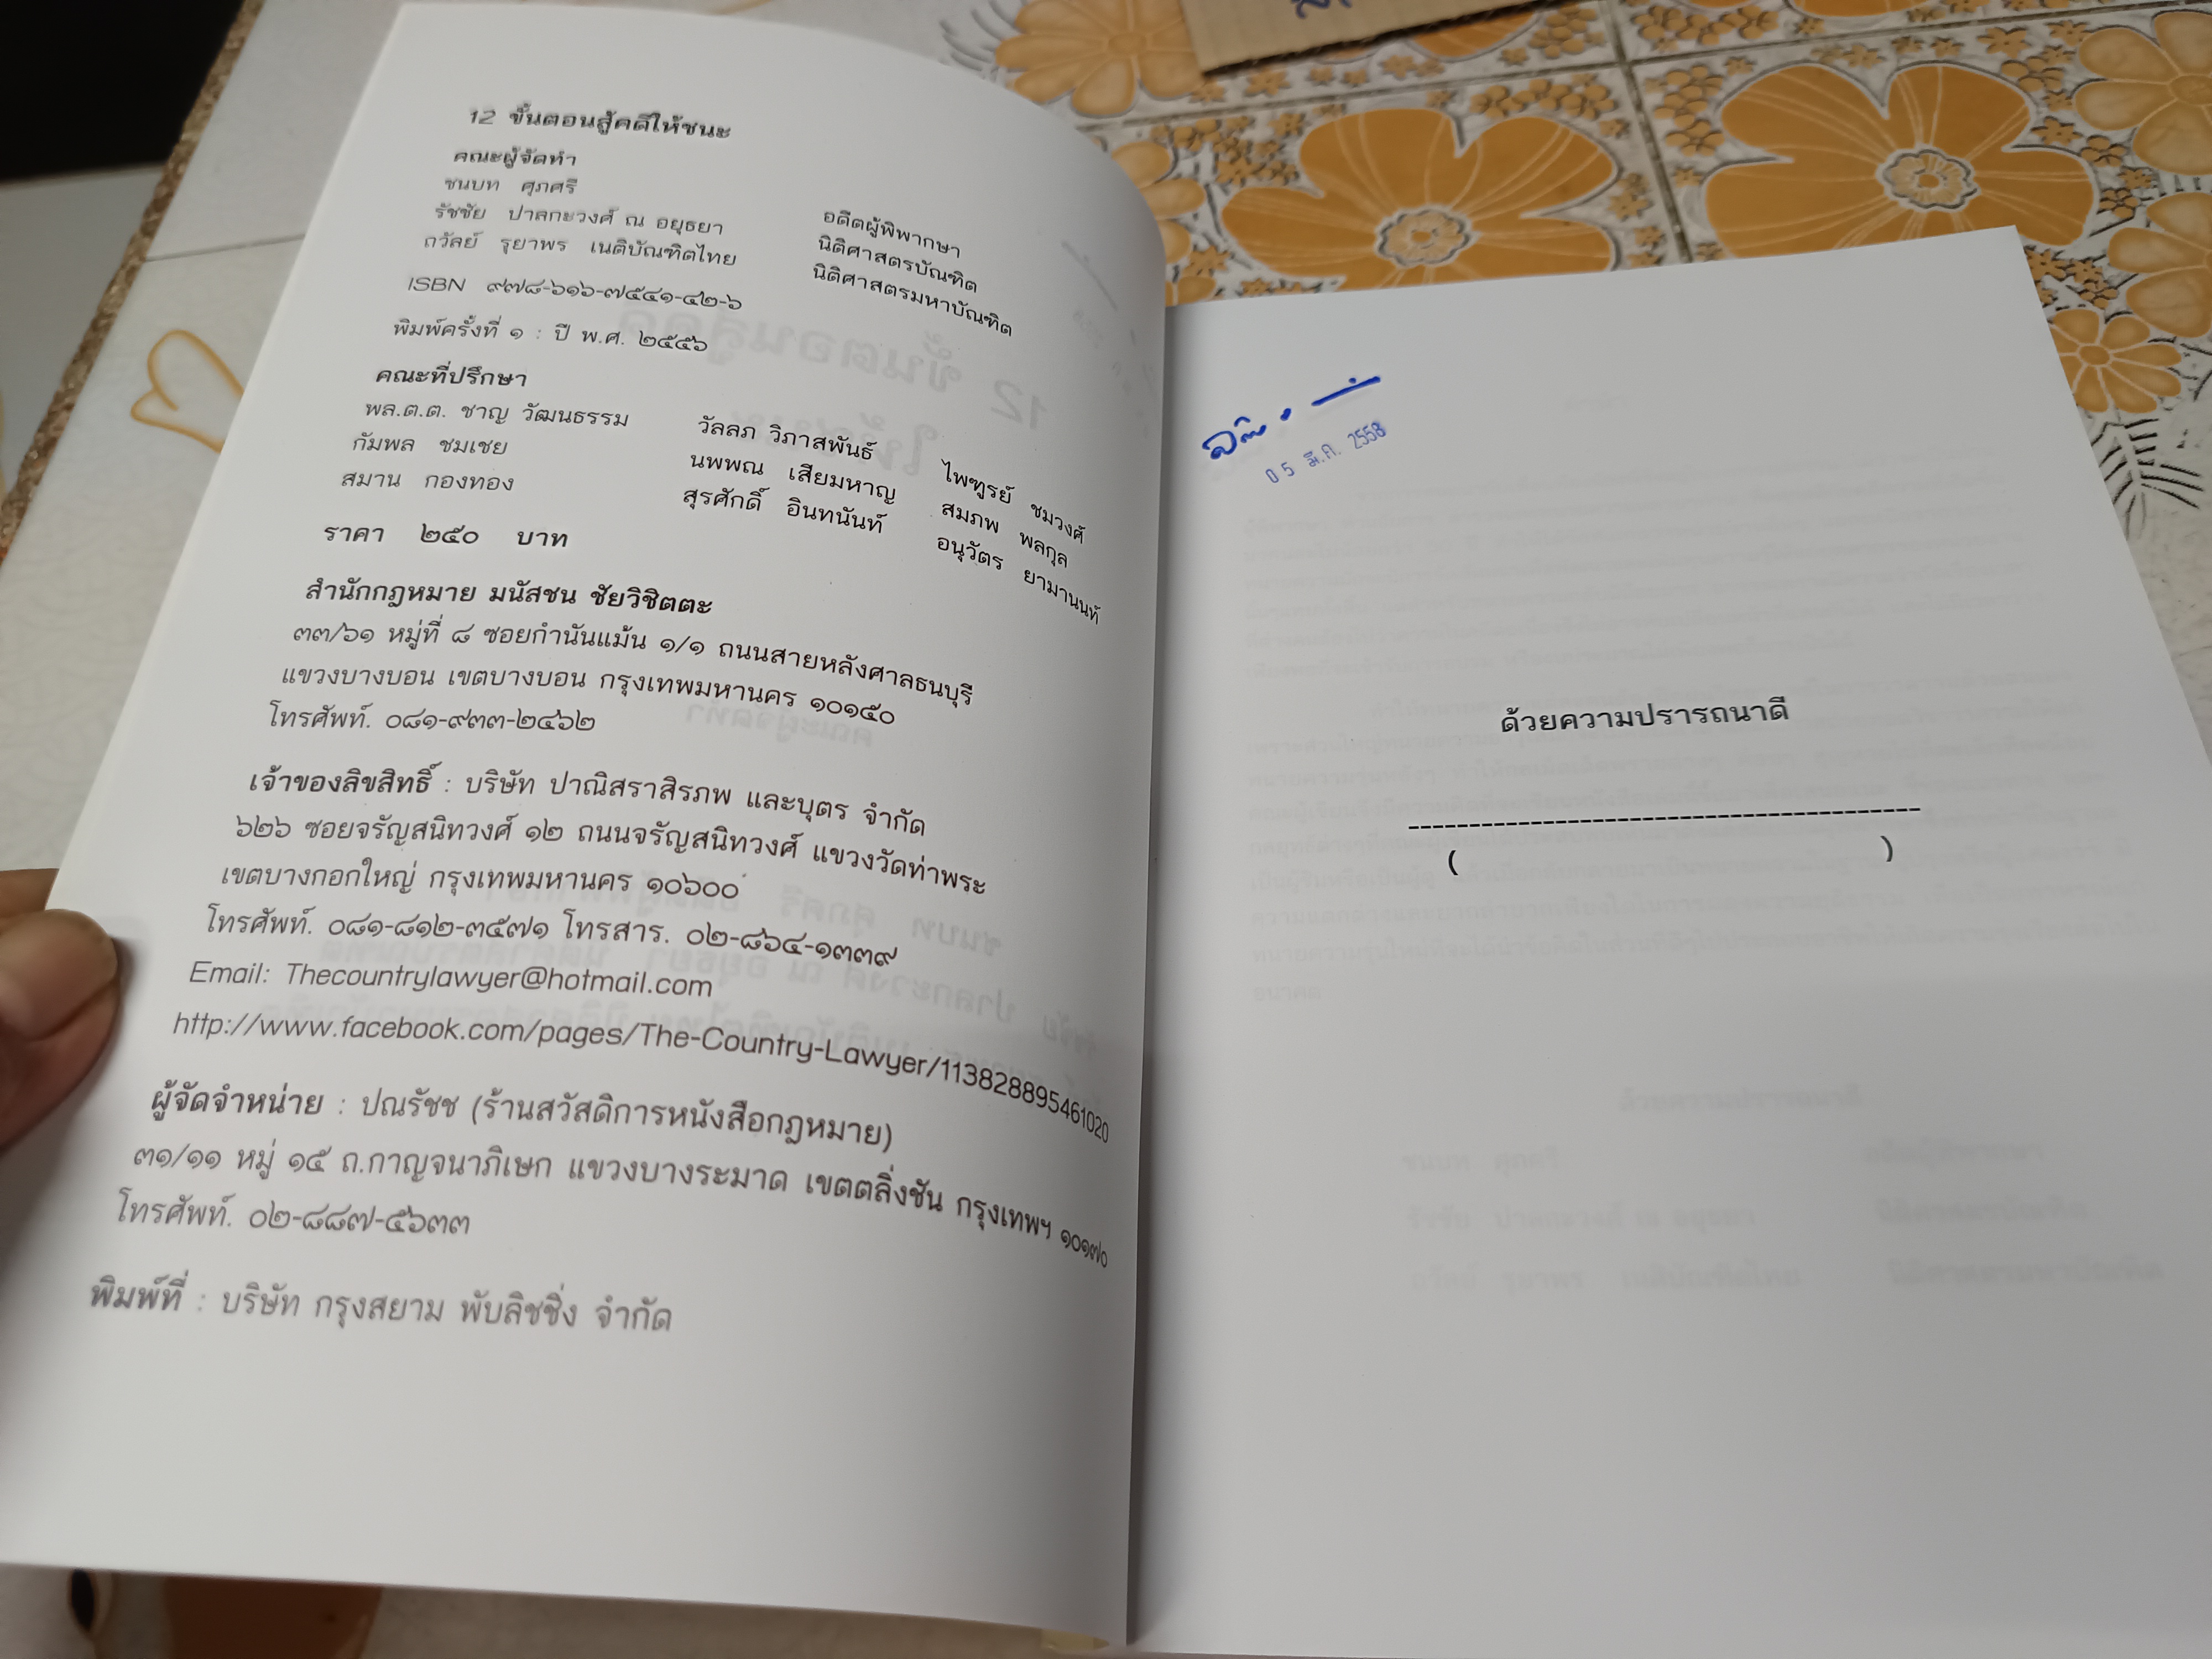 12 ขั้นตอนสู้คดีให้ชนะ
คณะผู้จัดทำ
ชนบท ศุภศรี อดีตผู้พิพากษา
รัชชัย ปาลกะวงศ์ ณ อยุธยา นิติศาสตรบัณฑิต
ถวัลย์ รุยาพร เนติบัณฑิตไทย นิติศาสตรมหาบัณฑิต
ISBN ๙๗๘-๖๑๖-๗๕๔๑-๔๒-๖
พิมพ์ครั้งที่ ๑ : ปี พ.ศ. ๒๕๕๖
คณะที่ปรึกษา
พล.ต.ต. ชาญ วัฒนธรรม วัลลภ วิภาสพันธ์ ไพฑูรย์ ชมวงศ์
กัมพล ชมเชย นพพณ เสียมหาญ สมภพ พลกุล
สมาน กองทอง สุรศักดิ์ อินทนันท์ อนุวัตร ยามานนท์
ราคา ๒๕๐ บาท
สำนักกฎหมาย มนัสชน ชัยวิชิตตะ
๓๓/๖๑ หมู่ที่ ๘ ซอยกำนันแม้น ๑/๑ ถนนสายหลังศาลธนบุรี
แขวงบางบอน เขตบางบอน กรุงเทพมหานคร ๑๐๑๕๐
โทรศัพท์. ๐๘๑-๙๓๓-๒๔๖๒
เจ้าของลิขสิทธิ์ : บริษัท ปาณิสราสิรภพ และบุตร จำกัด
๖๒๖ ซอยจรัญสนิทวงศ์ ๑๒ ถนนจรัญสนิทวงศ์ แขวงวัดท่าพระ
เขตบางกอกใหญ่ กรุงเทพมหานคร ๑๐๖๐๐
โทรศัพท์. ๐๘๑-๘๑๒-๓๕๗๑ โทรสาร. ๐๒-๘๖๔-๑๓๓๙
Email: Thecountrylawyer@hotmail.com
http://www.facebook.com/pages/The-Country-Lawyer/113828895461020
ผู้จัดจำหน่าย : ปณรัชช (ร้านสวัสดิการหนังสือกฎหมาย)
๓๑/๑๑ หมู่ ๑๕ ถ.กาญจนาภิเษก แขวงบางระมาด เขตตลิ่งชัน กรุงเทพฯ ๑๐๑๗๐
โทรศัพท์. ๐๒-๘๘๗-๕๖๓๓
พิมพ์ที่ : บริษัท กรุงสยาม พับลิชชิ่ง จำกัด
05 มี.ค. 2558
ด้วยความปรารถนาดี
( )